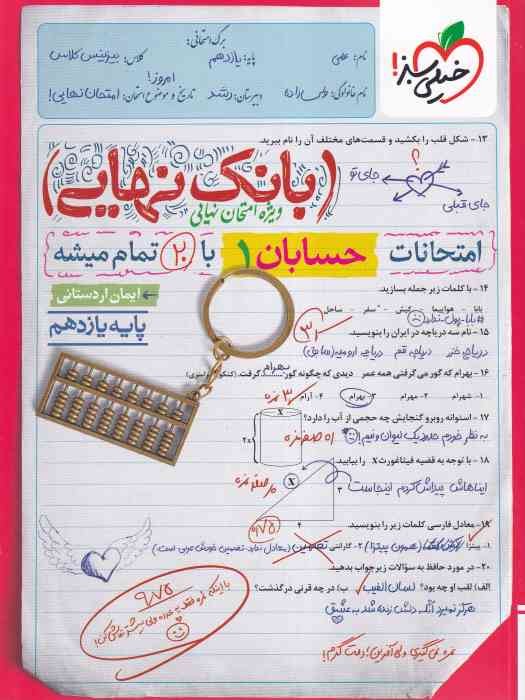 خیلی سبز!
برگ امتحانی:
نام: علمی
پایه: یازدهم
کلاس: بیزینس کلاس
امروز!
نام خانوادگی:
دبیرستان: رشد
تاریخ و موضوع امتحان: امتحان نهایی!
۱۳ - شکل قلب را بکشید و قسمت‌های مختلف آن را نام ببرید.
؟
جای تو
جای قبلی
(بانک نهایی)
ویژه امتحان نهایی
امتحانات حسابان ۱ با ۲۰ تمام میشه
ایمان اردستانی
پایه یازدهم
۱۴ - با کلمات زیر جمله بسازید.
بابا - هواپیما - کیش - سفر - ساحل
بابا پول نداره
۱۵ - نام سه دریاچه در ایران را بنویسید.
دریاچه خزر دریاچه قم دریاچه ارومیه (سابق)
۱۶ - بهرام که گور می‌گرفتی همه عمر دیدی که چگونه گور بهرام گرفت.
۱- شهرام ۲- مهرام ۳- بهرام ۴- آرام
۱۷ - استوانه روبرو گنجایش چه حجمی از آب را دارد؟
به نظر خودم حدود یک لیوان و نیم!
x
2x
۱۸ - با توجه به قضیه فیثاغورث x را بیابید.
ایناهاش پیداش کردم اینجاست
x
۳
۴
۰/۷۵
۱۹ - معادل فارسی کلمات زیر را بنویسید.
۱- پیتزا
۲- گارانتی
۲۰ - در مورد حافظ به سؤالات زیر جواب بدهید.
الف) لقب او چه بود؟ لسان الغیب ب) در چه قرنی درگذشت؟
هرگز نمیرد آنکه دلش زنده شد به عشق
۹/۷۵
نمره نمی‌گیری ولی آفرین؛ دمت گرم!